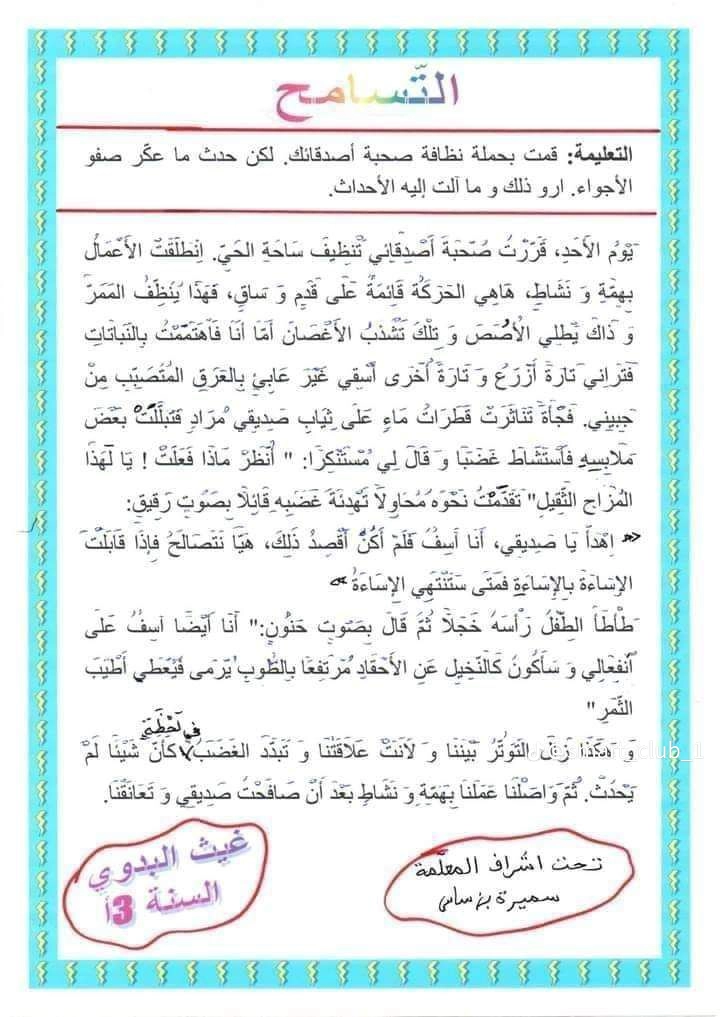 التّسامح
التعليمة: قمت بحملة نظافة صحبة أصدقائك. لكن حدث ما عكّر صفو
الأجواء. ارو ذلك و ما آلت إليه الأحداث.
يَوْمُ الأَحَدِ، قَرَّرْتُ صُحْبَةَ أَصْدِقَائِي تَنْظِيفَ سَاحَةِ الحَيِّ. اِنْطَلَقَتْ الأَعْمَالُ
بِهِمَّةٍ وَ نَشَاطٍ، هَاهِي الحَرَكَةُ قَائِمَةٌ عَلَى قَدَمٍ وَ سَاقٍ، فَهَذَا يُنَظِّفُ المَمَرَّ
وَ ذَاكَ يَطْلِي الأُصُصَ وَ تِلْكَ تُشَذِّبُ الأَغْصَانَ أَمَّا أَنَا فَاهْتَمَمْتُ بِالنَّبَاتَاتِ
فَتَرَانِي تَارَةً أَزْرَعُ وَ تَارَةً أُخْرَى أَسْقِي غَيْرَ عَابِئٍ بِالعَرَقِ المُتَصَبِّبِ مِنْ
جَبِينِي. فَجْأَةً تَنَاثَرَتْ قَطَرَاتُ مَاءٍ عَلَى ثِيَابِ صَدِيقِي مُرَادٍ فَتَبَلَّلَتْ بَعْضُ
مَلَابِسِهِ فَاسْتَشَاطَ غَضَبًا وَ قَالَ لِي مُسْتَنْكِرًا: " أُنْظُرْ مَاذَا فَعَلْتَ ! يَا لَهَذَا
المُزَاحِ الثَّقِيلِ" تَقَدَّمْتُ نَحْوَهُ مُحَاوِلًا تَهْدِئَةَ غَضَبِهِ قَائِلًا بِصَوْتٍ رَقِيقٍ:
« اِهْدَأْ يَا صَدِيقِي، أَنَا آسِفٌ فَلَمْ أَكُنْ أَقْصِدُ ذَلِكَ، هَيَّا نَتَصَالَحُ فَإِذَا قَابَلْتَ
الإِسَاءَةَ بِالإِسَاءَةِ فَمَتَى سَتَنْتَهِي الإِسَاءَةُ »
طَأْطَأَ الطِّفْلُ رَأْسَهُ خَجَلًا ثُمَّ قَالَ بِصَوْتٍ حَنُونٍ:" أَنَا أَيْضًا آسِفٌ عَلَى
اَنْفِعَالِي وَ سَأَكُونُ كَالنَّخِيلِ عَنِ الأَحْقَادِ مُرْتَفِعًا بِالطُّوبِ يُرْمَى فَيُعْطِي أَطْيَبَ
الثَّمَرِ"
وَ هَكَذَا زَالَ التَّوَتُّرُ بَيْنَنَا وَ لَانَتْ عَلَاقَتُنَا وَ تَبَدَّدَ الغَضَبُ في لحظةٍ كَأَنَّ شَيْئًا لَمْ
يَحْدُثْ. ثُمَّ وَاصَلْنَا عَمَلَنَا بِهِمَّةٍ وَ نَشَاطٍ بَعْدَ أَنْ صَافَحْتُ صَدِيقِي وَ تَعَانَقْنَا.
تحت اشراف المعلّمة
سميرة بن ساسي
غيث البدوي
السنة 3أ